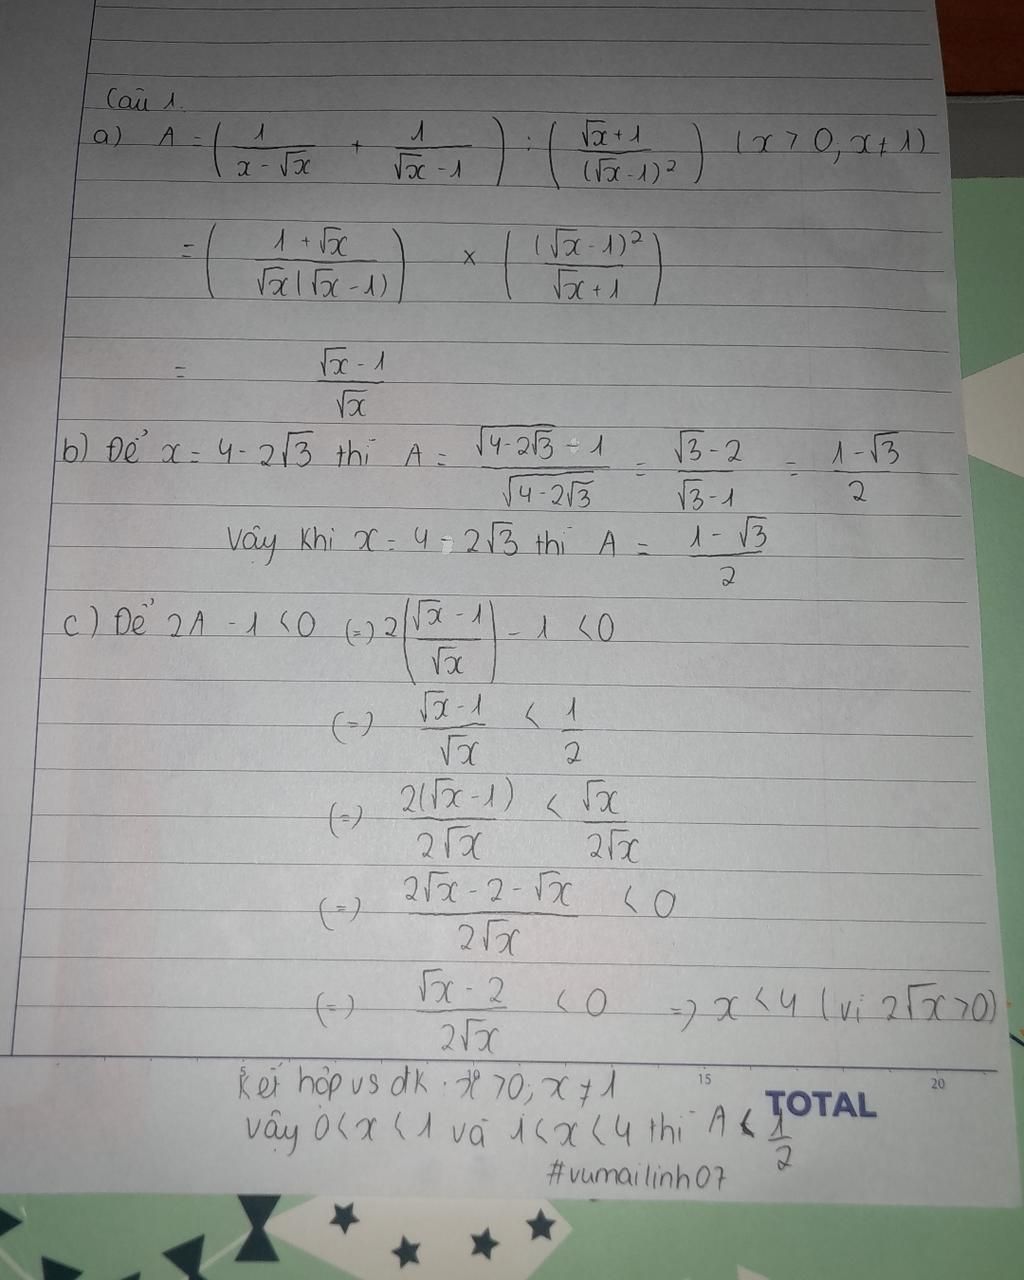 Câu 1.
a) A = ( 1/(x - √x) + 1/(√x - 1) ) : ( (√x + 1)/(√x - 1)² ) (x > 0, x ≠ 1)
= ( (1 + √x)/(√x(√x - 1)) ) × ( (√x - 1)²/(√x + 1) )
= (√x - 1)/√x
b) Để x = 4 - 2√3 thì A = (√(4 - 2√3) - 1)/√(4 - 2√3) = (√3 - 2)/(√3 - 1) = (1 - √3)/2
Vậy khi x = 4 - 2√3 thì A = (1 - √3)/2
c) Để 2A - 1 < 0 (=) 2((√x - 1)/√x) - 1 < 0
(=) (√x - 1)/√x < 1/2
(=) 2(√x - 1)/(2√x) < √x/(2√x)
(=) (2√x - 2 - √x)/(2√x) < 0
(=) (√x - 2)/(2√x) < 0 =) x < 4 (vì 2√x > 0)
15 20
Kết hợp vs đk : x > 0; x ≠ 1
TOTAL
Vậy 0 < x < 1 và 1 < x < 4 thì A < 1/2
#vumailinh07